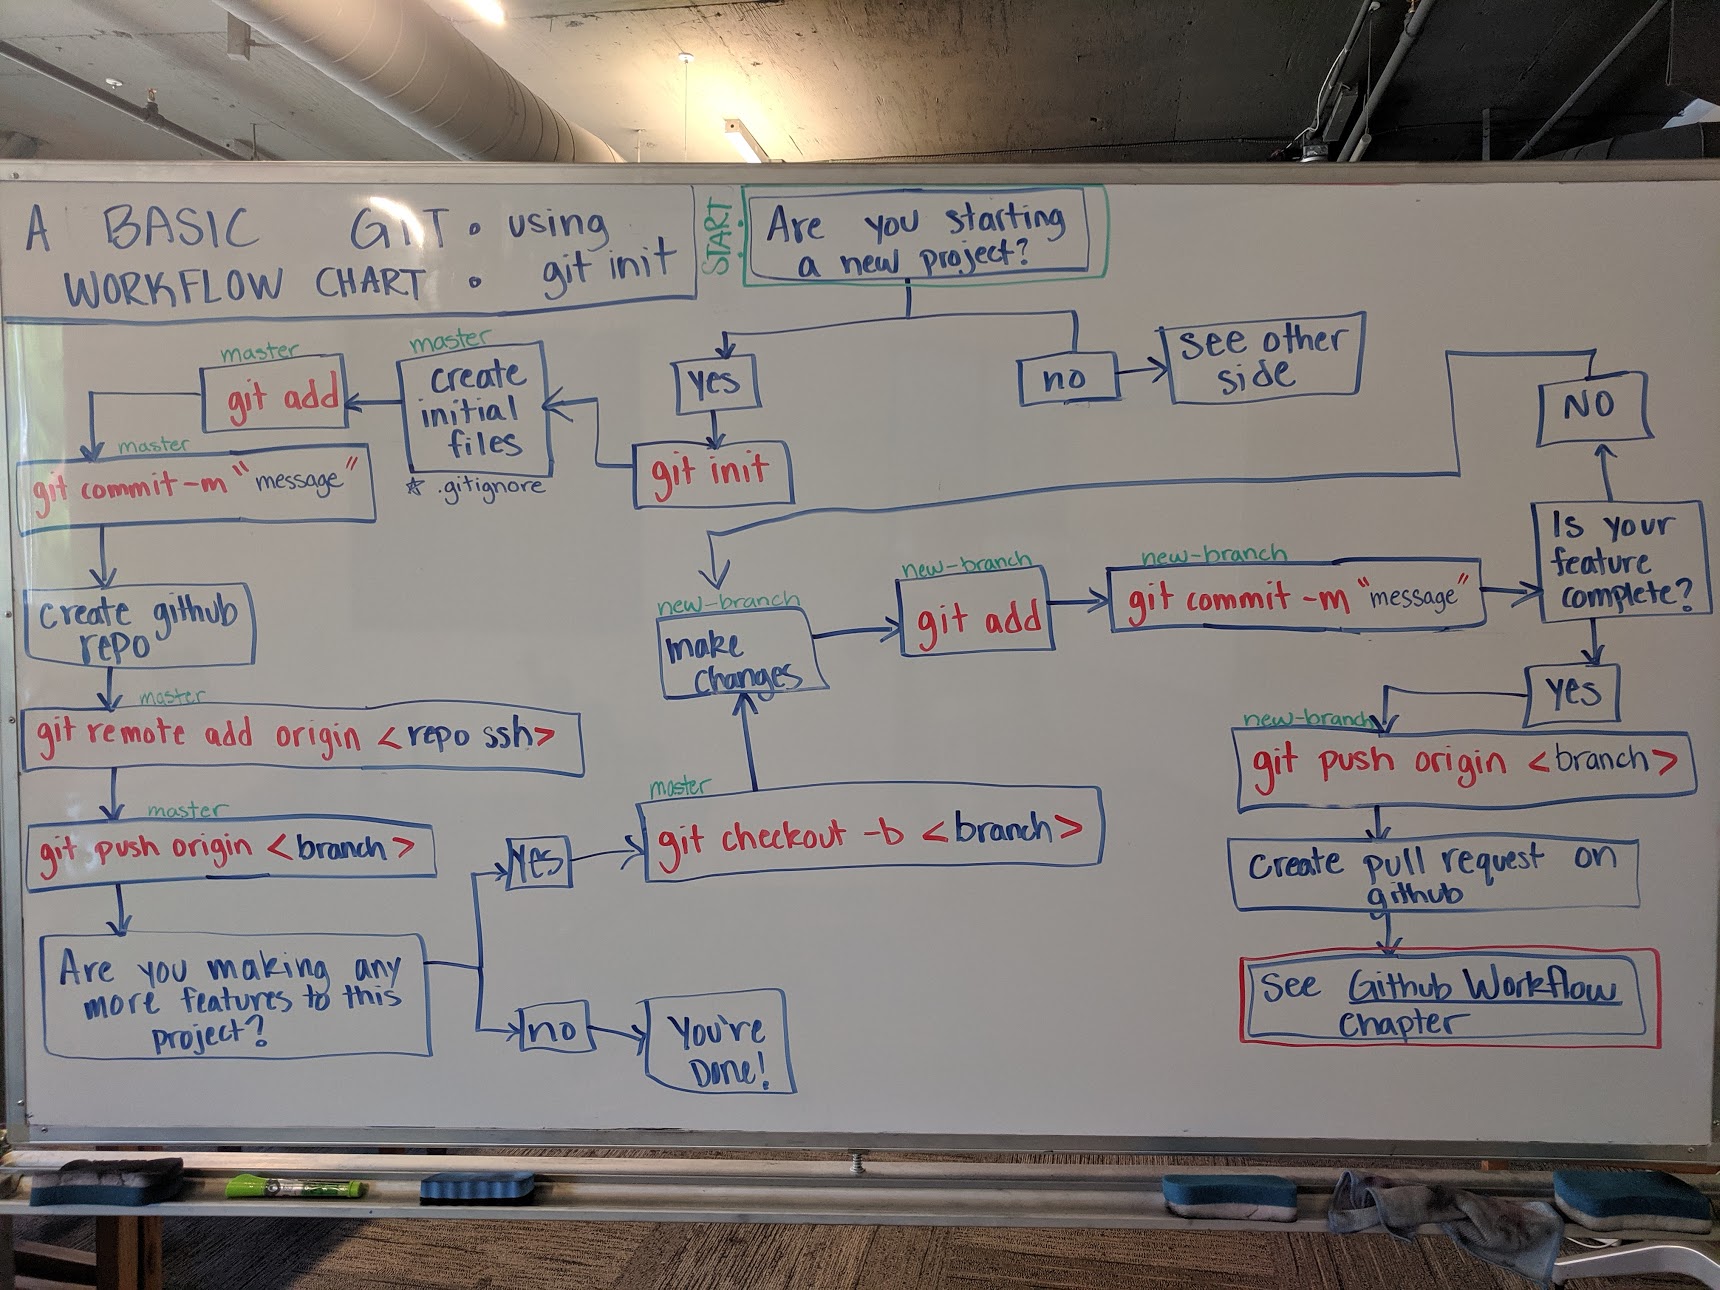 A BASIC GIT : using
WORKFLOW CHART : git init
START:
Are you starting
a new project?
yes
no
see other
side
git init
master
create
initial
files
* .gitignore
master
git add
master
git commit -m "message"
create github
repo
master
git remote add origin <repo ssh>
master
git push origin <branch>
Are you making any
more features to this
project?
yes
no
You're
Done!
master
git checkout -b <branch>
new-branch
make
changes
new-branch
git add
new-branch
git commit -m "message"
Is your
feature
complete?
NO
yes
new-branch
git push origin <branch>
create pull request on
github
see Github Workflow
chapter